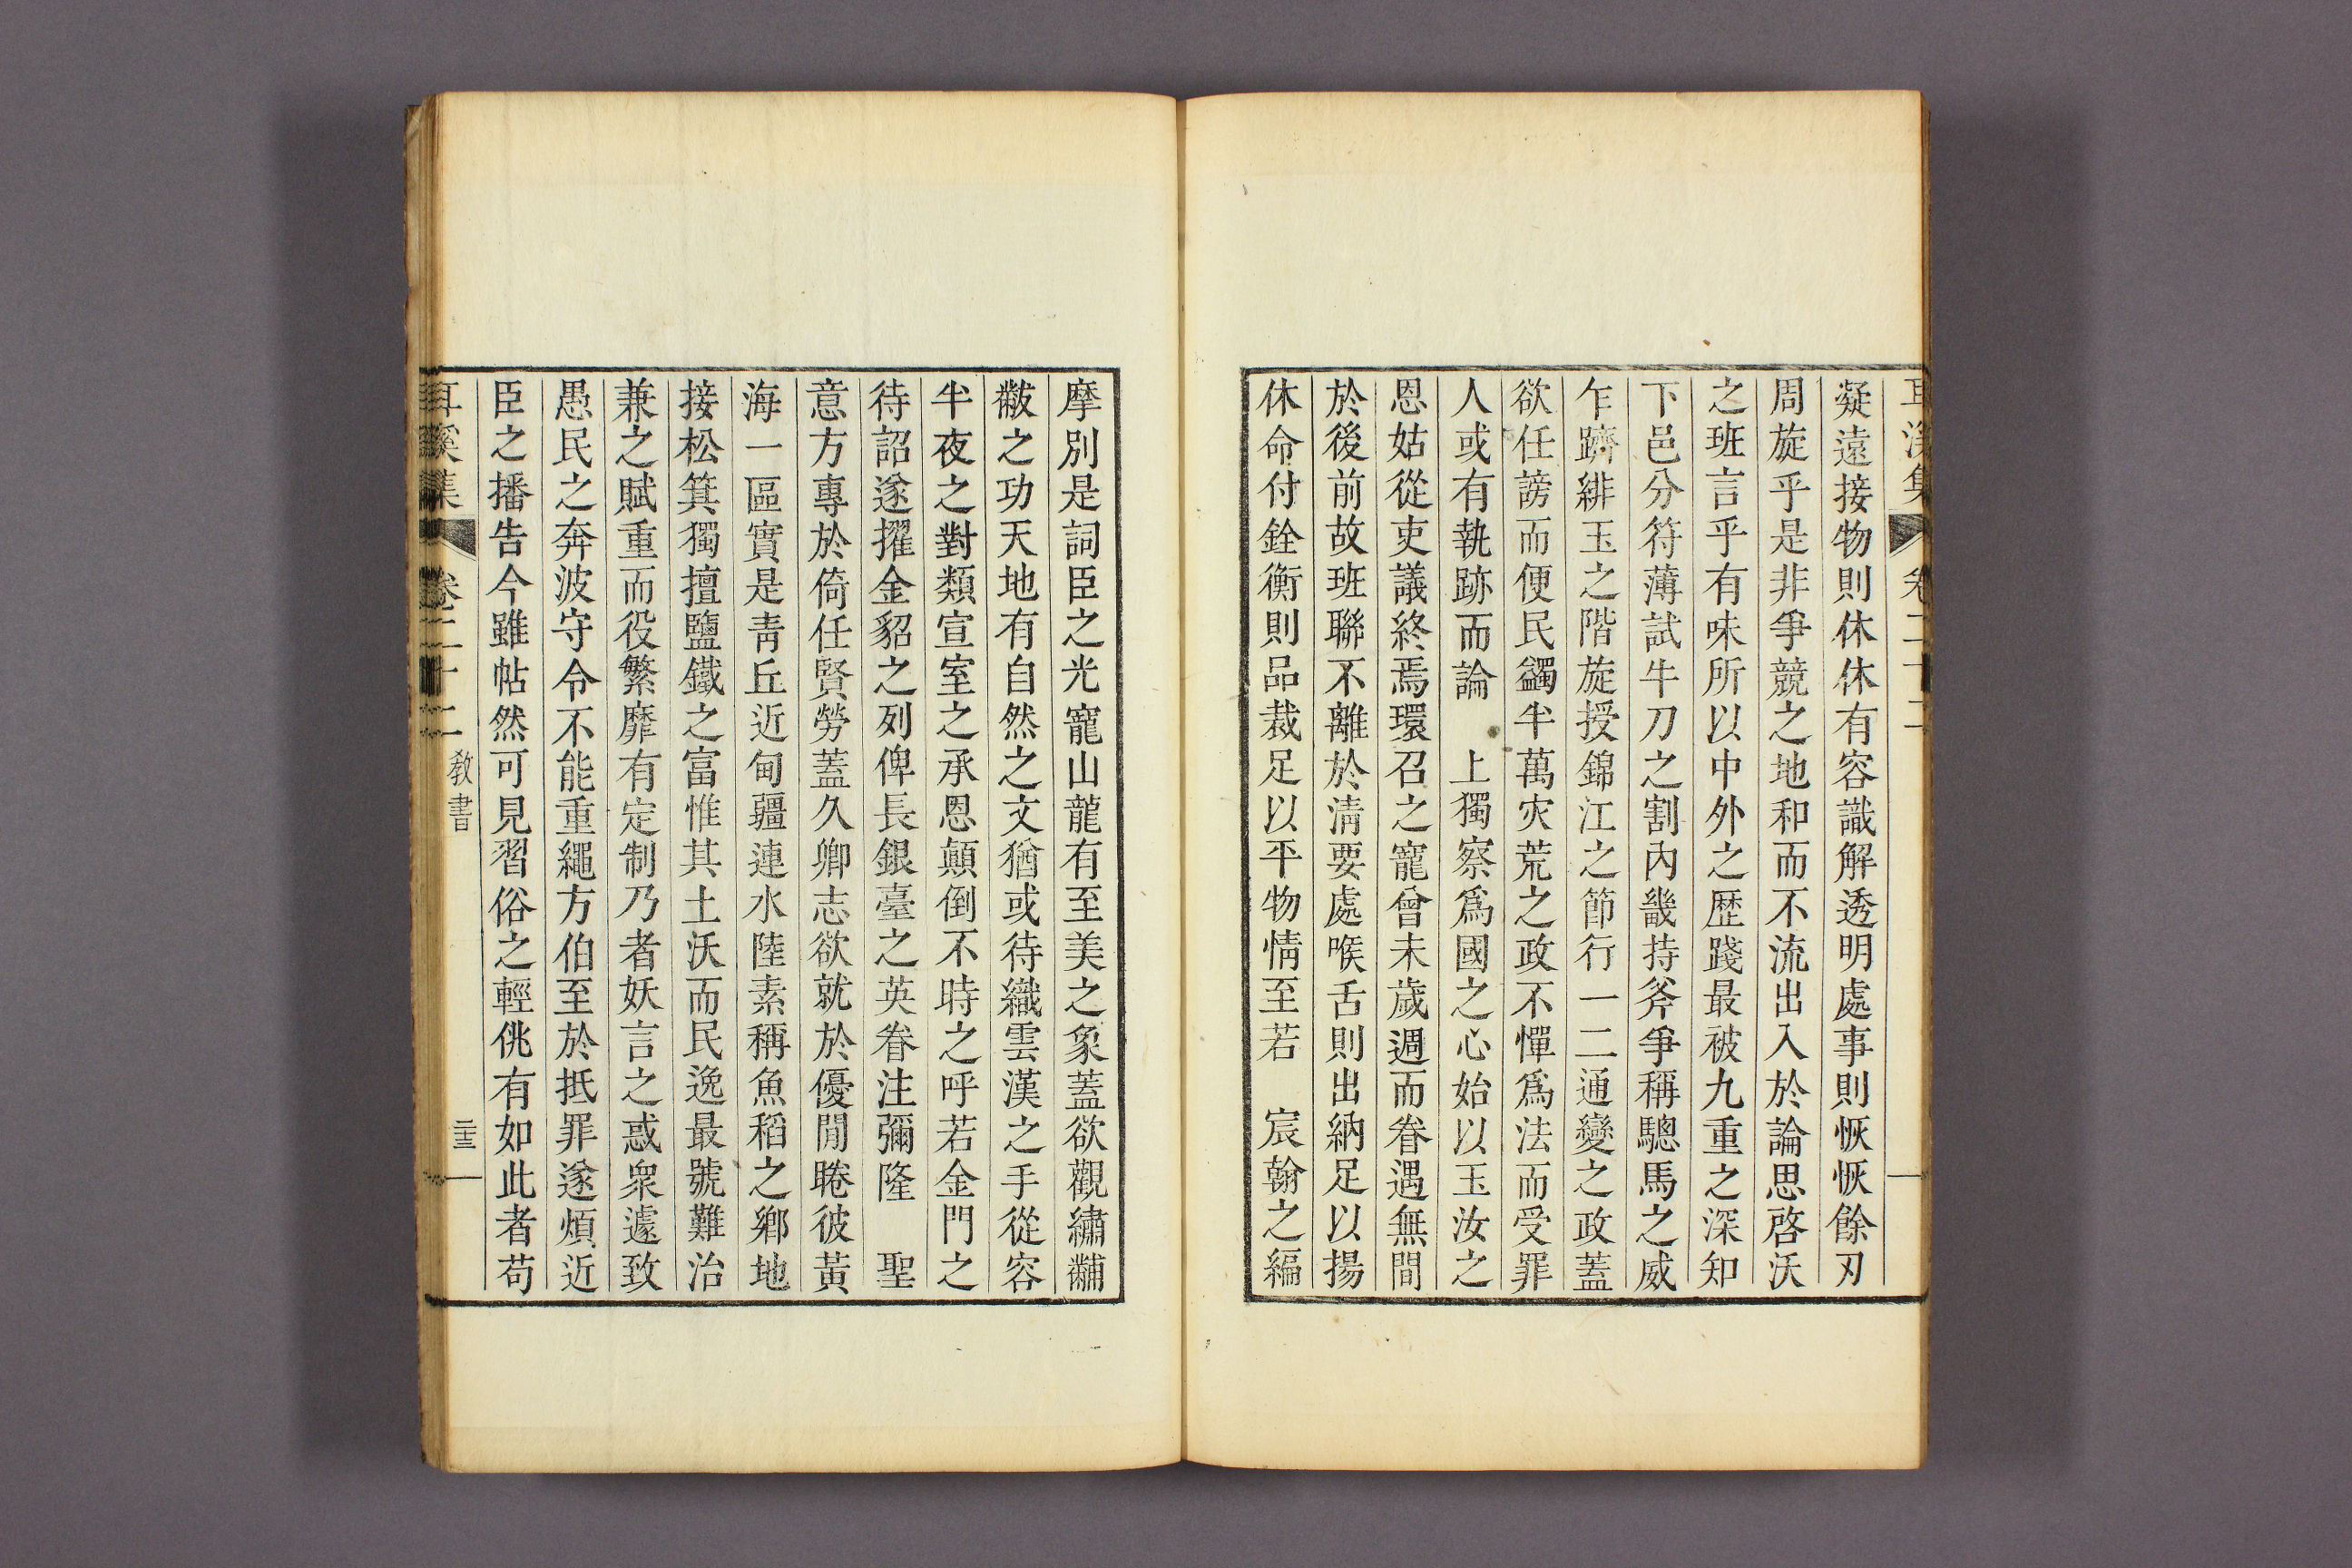 耳溪集 卷二十二
凝遠接物則休休有容識解透明處事則恢恢餘刃
周旋乎是非爭競之地和而不流出入於論思啓沃
之班言乎有味所以中外之歷踐最被九重之深知
下邑分符薄試牛刀之割內畿持斧爭稱驄馬之威
乍躋緋玉之階旋授錦江之節行一二通變之政蓋
欲任謗而便民蠲半萬灾荒之政不憚爲法而受罪
人或有執跡而論 上獨察爲國之心始以玉汝之
恩姑從吏議終焉環召之寵曾未歲週而眷遇無間
於後前故班聯不離於淸要處喉舌則出納足以揚
休命付銓衡則品裁足以平物情至若 宸翰之編
摩別是詞臣之光寵山龍有至美之象蓋欲觀繡黼
黻之功天地有自然之文猶或待織雲漢之手從容
半夜之對類宣室之承恩顚倒不時之呼若金門之
待詔遂擢金貂之列俾長銀臺之英眷注彌隆 聖
意方專於倚任賢勞蓋久卿志欲就於優閒睠彼黃
海一區實是靑丘近甸疆連水陸素稱魚稻之鄕地
接松箕獨擅鹽鐵之富惟其土沃而民逸最號難治
兼之賦重而役繁靡有定制乃者妖言之惑衆遽致
愚民之奔波守令不能重繩方伯至於抵罪遂煩近
臣之播告今雖帖然可見習俗之輕佻有如此者苟
耳溪集 卷二十二 敎書 二十三